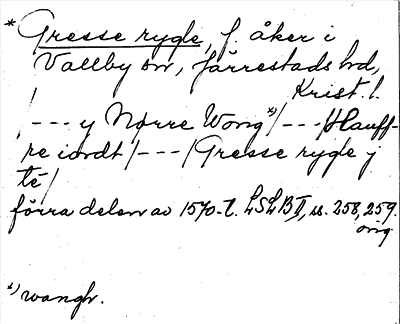 * Gresse rygle, f. åker i
Vallby sn, Järrestads hd,
Krist. l.
/--- y Nørre Wong *)/---/Hauff-
re iordt/---/Gresse rygle j
té/
förra delen av 1570-t. LSLB II, ss. 258, 259.
orig
*) wangh.